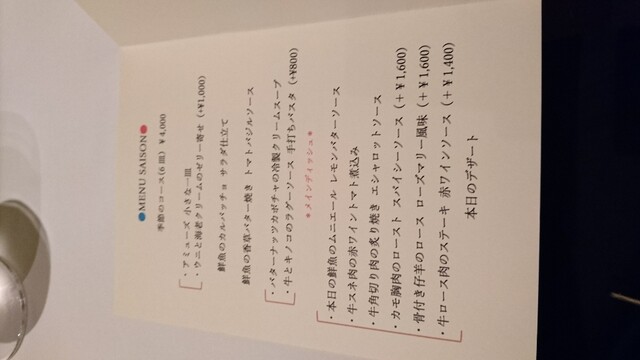 ●MENU SAISON●
季節のコース(6皿) ¥4,000
・アミューズ 小さな一皿
・ウニと海老クリームのゼリー寄せ (+¥1,000)
鮮魚のカルパッチョ サラダ仕立て
鮮魚の香草バター焼き トマトバジルソース
・バターナッツカボチャの冷製クリームスープ
・牛とキノコのラグーソース 手打ちパスタ (+¥800)
*メインディッシュ*
・本日の鮮魚のムニエール レモンバターソース
・牛スネ肉の赤ワイントマト煮込み
・牛角切り肉の炙り焼き エシャロットソース
・カモ胸肉のロースト スパイシーソース (+¥1,600)
・骨付き仔羊のロース ローズマリー風味 (+¥1,600)
・牛ロース肉のステーキ 赤ワインソース (+¥1,400)
本日のデザート